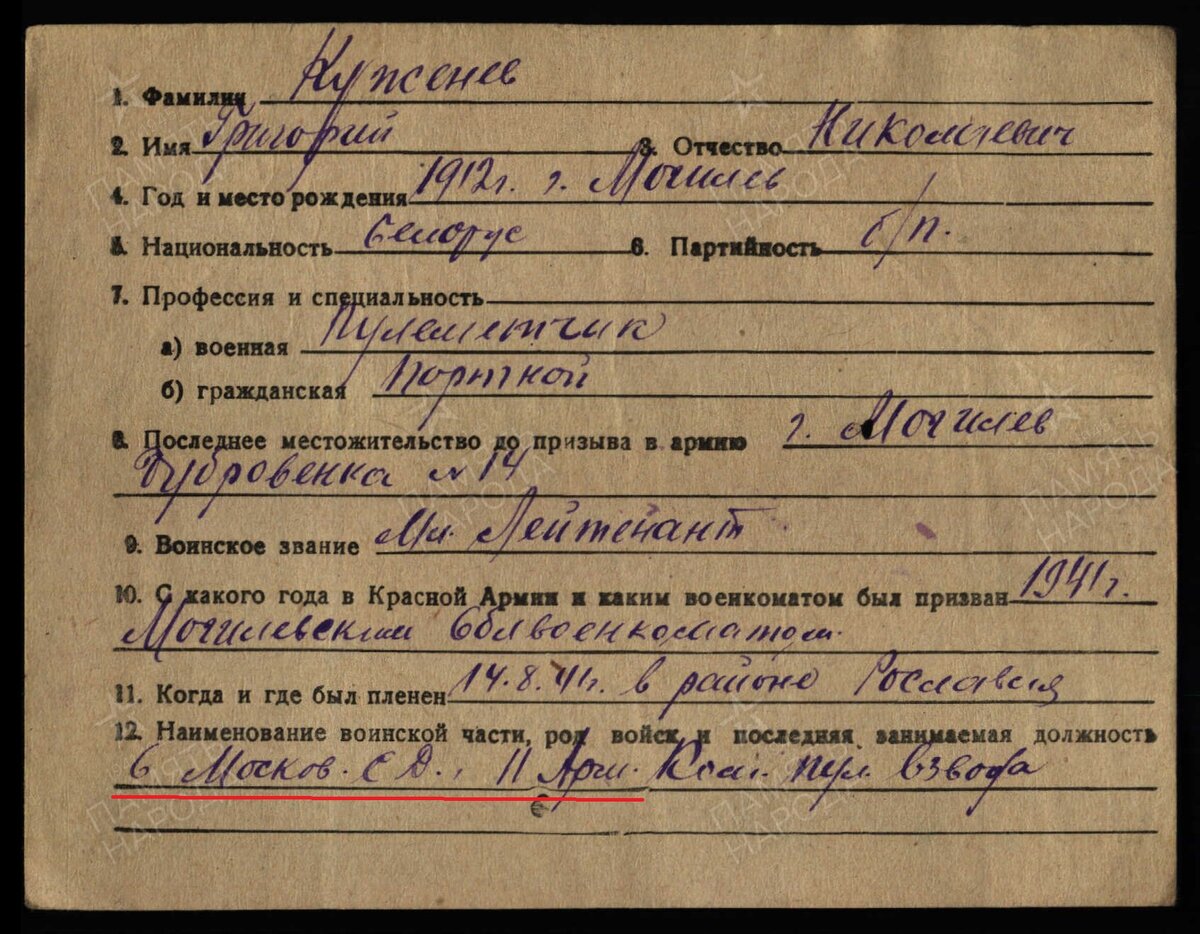 1. Фамилия Куженев
2. Имя Григорий 3. Отчество Николаевич
4. Год и место рождения 1912г. г. Могилев
5. Национальность белорус 6. Партийность б/п.
7. Профессия и специальность
а) военная Пулеметчик
б) гражданская Портной
8. Последнее местожительство до призыва в армию г. Могилев
Дубровенка № 14
9. Воинское звание Мл. Лейтенант
10. С какого года в Красной Армии и каким военкоматом был призван 1941г.
Могилевским Облвоенкоматом.
11. Когда и где был пленен 14.8.41г. в районе Рославля
12. Наименование воинской части, род войск и последняя занимаемая должность
6 Москов. С Д., 11 Арм. Ком. пул. взвода
ПАМЯТЬ НАРОДА